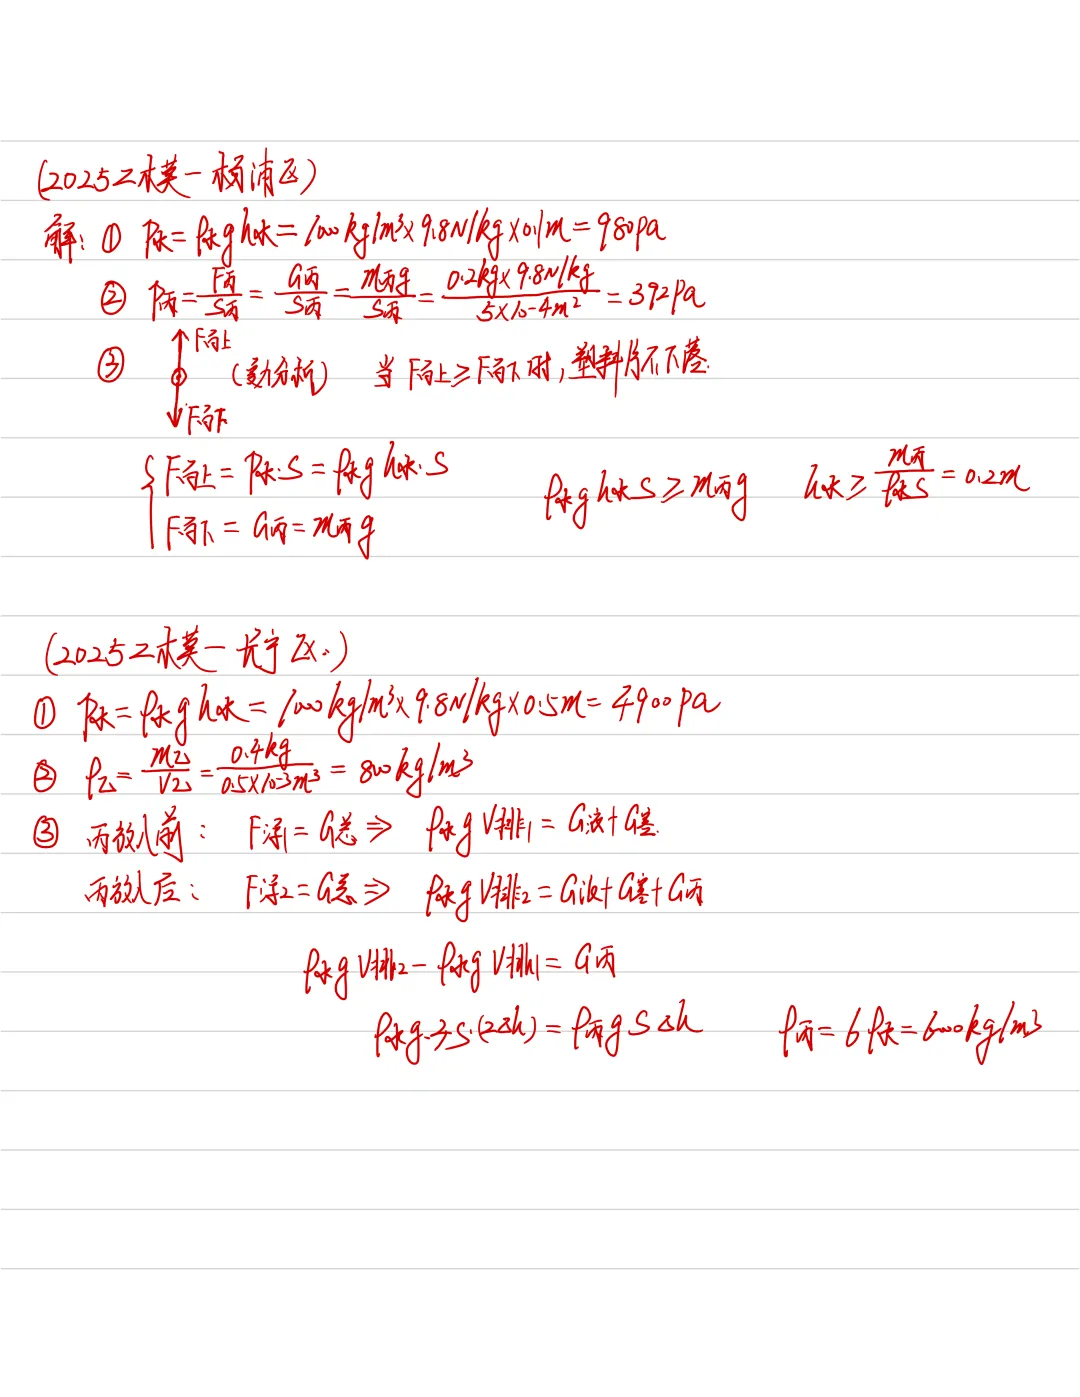 (2025二模一杨浦区)
解: ① P水=ρ水gh水=1000kg/m³×9.8N/kg×0.1m=980pa
② P丙=F丙/S丙=G丙/S丙=m丙g/S丙=0.2kg×9.8N/kg/5×10-4m²=392pa
③ F向上 (受力分析) 当F向上≥F向下时,塑料片不下落.
F向下
{F向上=P水·S=ρ水gh水·S ρ水gh水S≥m丙g h水≥m丙/ρ水S=0.2m
F向下=G丙=m丙g
(2025二模一长宁区.)
① P水=ρ水gh水=1000kg/m³×9.8N/kg×0.5m=4900pa
② ρ乙=m乙/V乙=0.4kg/0.5×10-3m³=800kg/m³
③ 丙放入前: F浮1=G总⇒ ρ水gV排1=G液+G塞.
丙放入后: F浮2=G总⇒ ρ水gV排2=G液+G塞+G丙
ρ水gV排2-ρ水gV排1=G丙
ρ水g·3S·(2Δh)=ρ丙gSΔh ρ丙=6ρ水=6000kg/m³